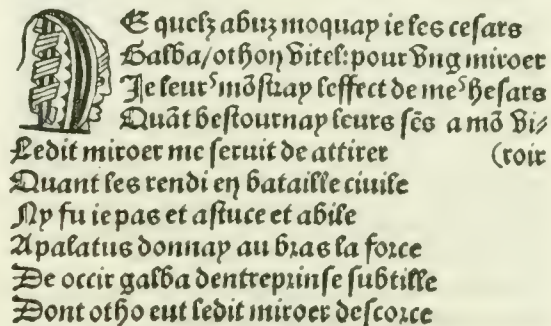 DE quelz abuz moquay ie les cesars
Galba/othon vitel:pour vng miroer
Je leurˢ mõstray leffect de meˢ hesars
Quãt bestournay leurs sẽs a mõ vi/
Ledit miroer me seruit de attirer (roir
Quant les rendi en bataille ciuile
Ny fu ie pas et astuce et abile
Apalatus donnay au bras la force
De occir galba dentreprinse subtille
Dont otho eut ledit miroer descorce